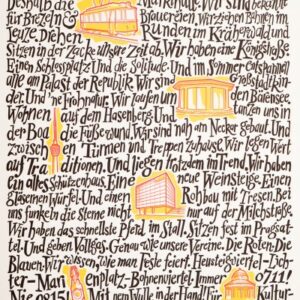 Deshalb die Markthalle. Wir sind bekannt
für Brezeln & Brauereien, wir ziehen Bahnen im
Leuze, Drehen Runden im Krähenwald und
Sitzen in der Zacke unsre Zeit ab. Wir haben eine Königstraße
Einen Schlossplatz Und die Solitude. Und im Sommer entspannen
alle am Palast der Republik. Wir sind Großstadtkin
der. Und 'ne Frohnatur. Wir laufen um den Bärensee,
Wohnen auf dem Hasenberg Und tanzen uns in
der Boa die Füße wund. Wir sind nah am Neckar gebaut. Und
zwischen Türmen und Treppen Zuhause. Wir legen Wert
auf Traditionen. Und liegen trotzdem im Trend. Wir haben
ein altes Schützenhaus. Eine neue Weinsteige. Einen
gläsernen Würfel. Und einen Rohbau mit Tresen. Bei
uns funkeln die Sterne nicht nur auf der Milchstraße.
Wir haben das schnellste Pferd im Stall. Sitzen fest im Programmsat-
tel. Und geben Vollgas. Genau wie unsere Vereine. Die Roten. Die
Blauen. Wir wissen, wie man Feste feiert. Heusteigviertel. Lich-
ter. Mari enplatz. Bohnenviertel. Immer 0711!
Nie 0815! Mit nem Wulle in der Hand. Für Kultur-